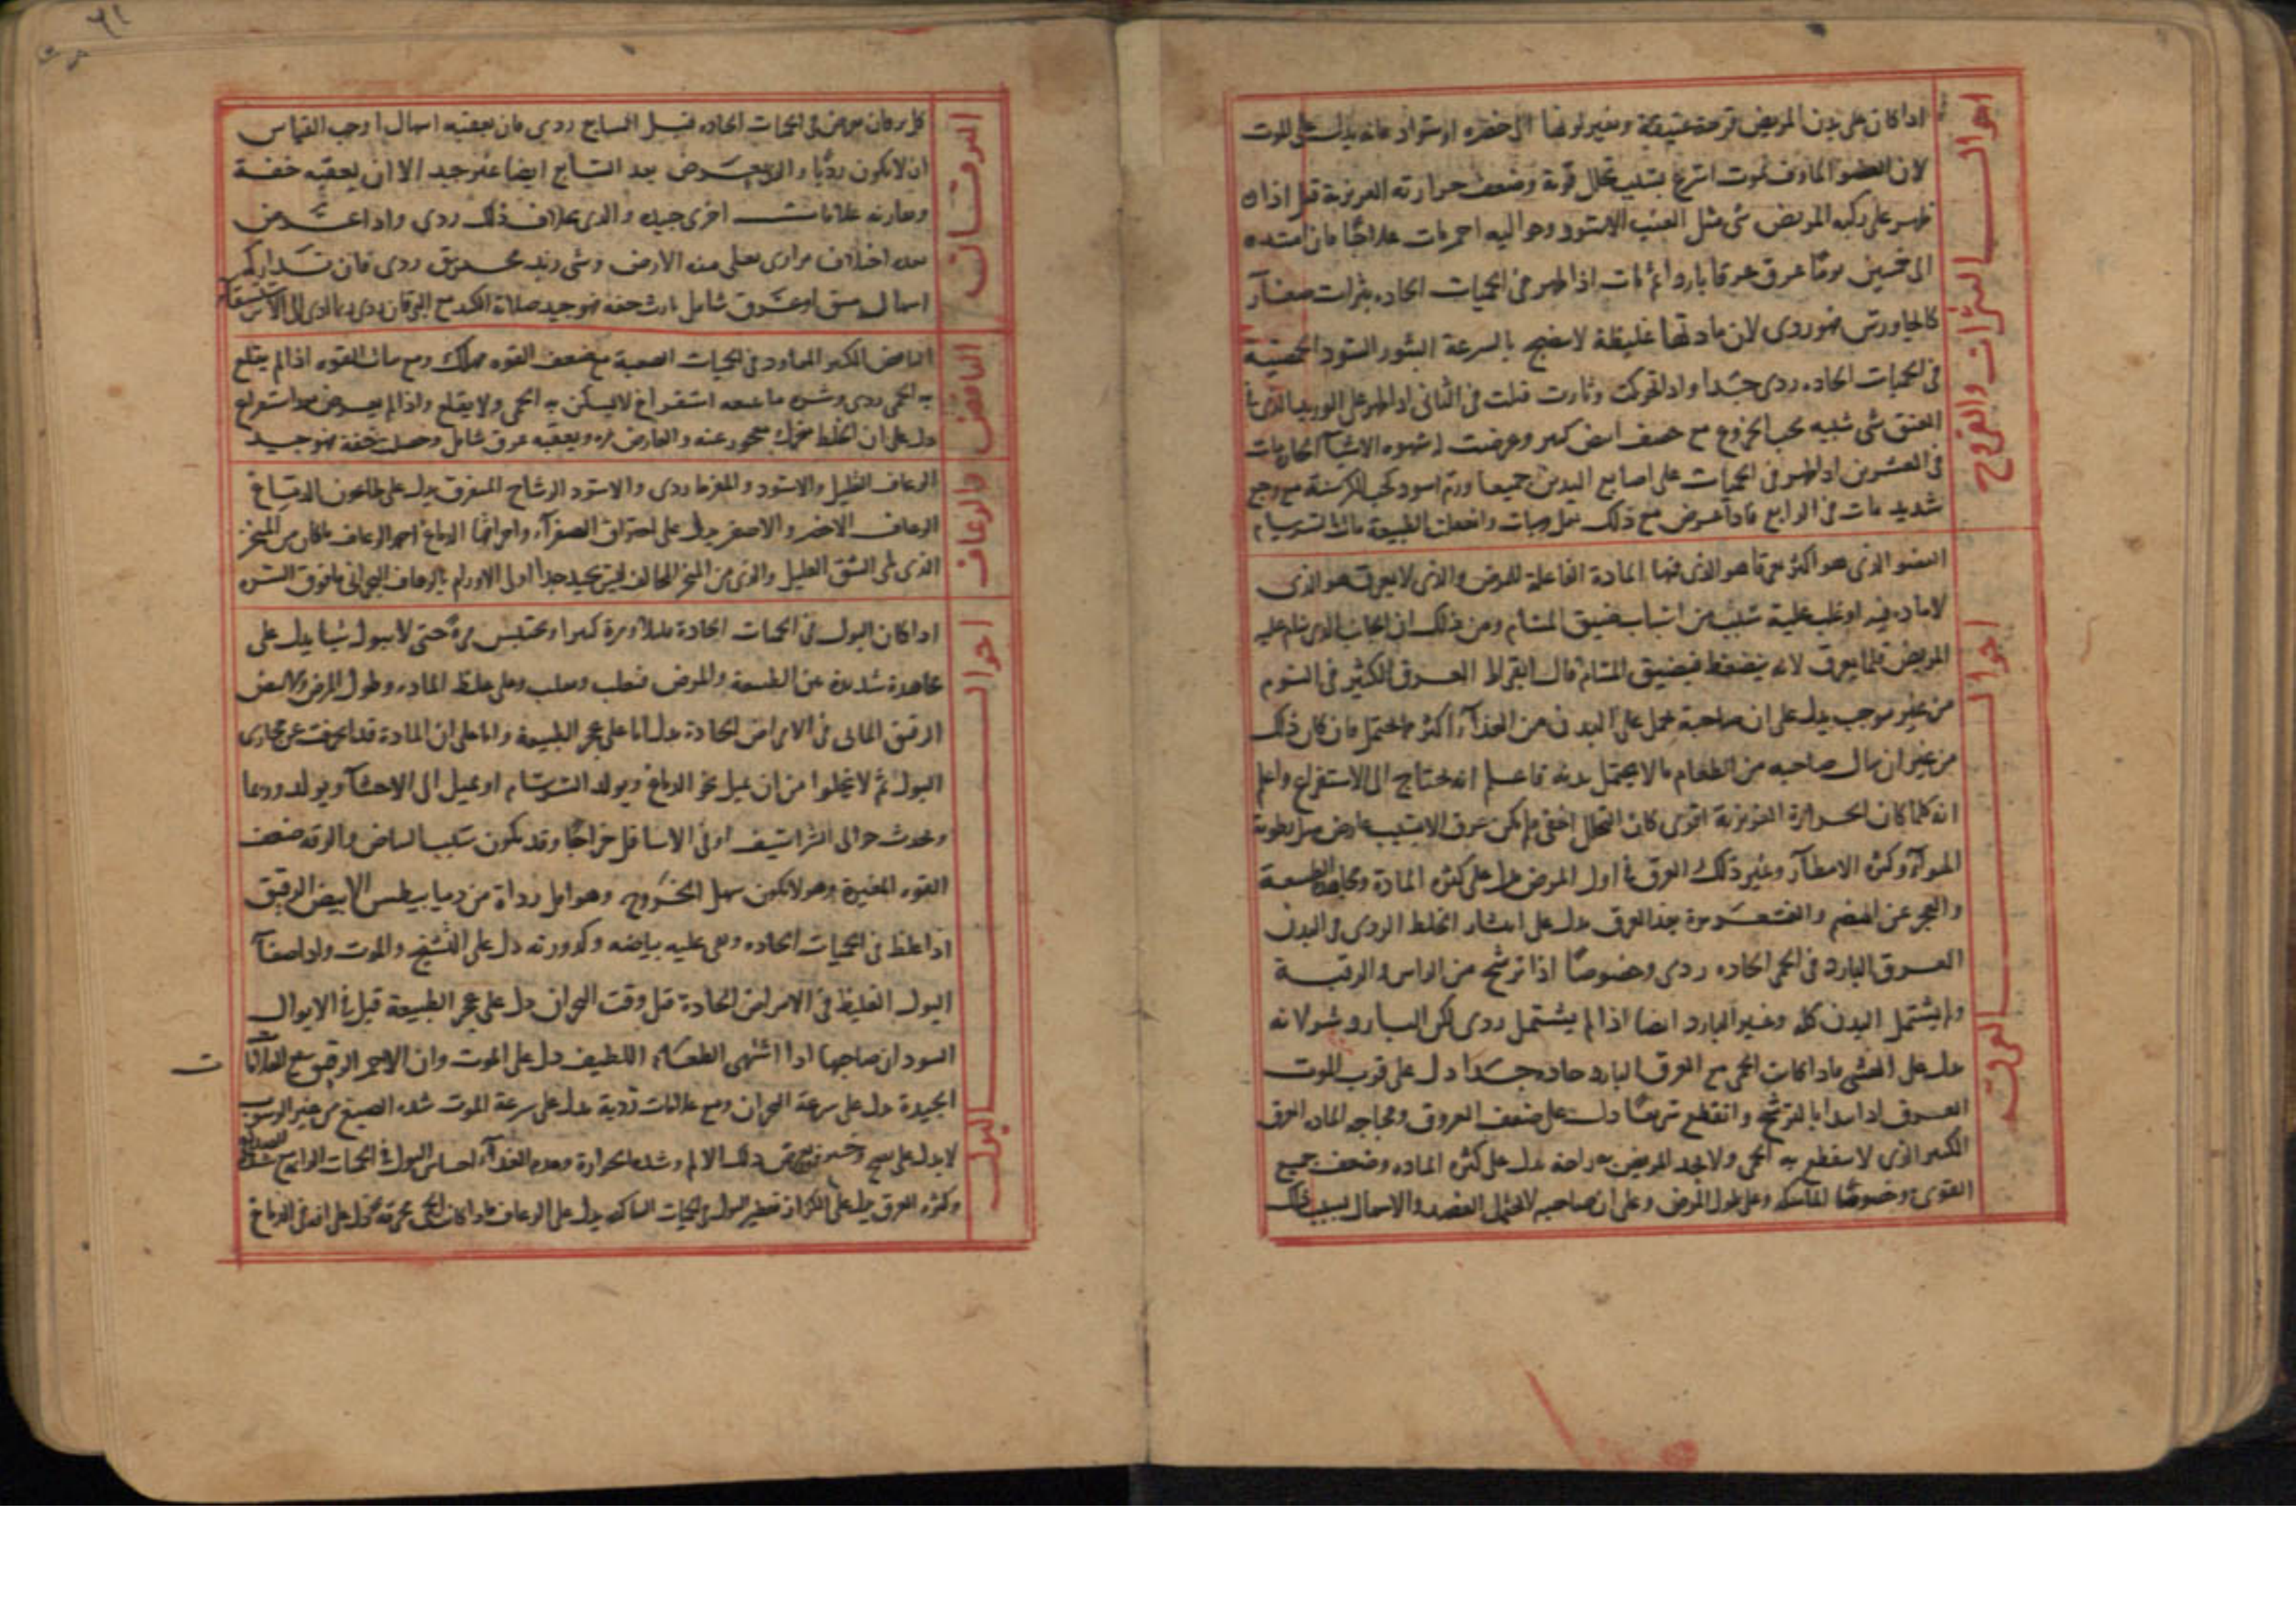 احوال البثرات والقروح
اذا كان على بدن المريض قرحة عتيقة وتغير لونها الى خضرة او سواد فانه يدل على الموت
لان العضو الماوف يموت اسرع بسبب تحلل قوته وضعف حرارته الغريزية قيل اذا
ظهر على ركبة المريض شى مثل العنب الاسود وحواليه احمر مات عاجلا فان امتد
الى خمسين يوما عرق عرقا باردا ثم مات اذا ظهر فى الحميات الحاده بثرات صغار
كالجاورس فهو ردى لان مادتها غليظة لا تنضج بالسرعة البثور السود الحمصية
فى الحميات الحاده ردى جدا واذا تحركت وثارت قتلت فى الثانى اذا ظهر على الوريد الذى فى
العنق شى شبيه بحب الخروع مع حصف ابيض كبير وعرضت له شهوة الاشيآ الحارة مات
فى العشرين اذا ظهر فى الحميات على اصابع اليدين جميعا ورم اسود كحب الكرسنة مع وجع
شديد مات فى الرابع فاذا عرض مع ذلك ثقل وسبات
احوال العرق
العضو الذى هو اكثر عرقا هو الذى فيها المادة الفاعلة للمرض والذى لا يعرق هو الذى
لا مادة فيه او غلب علية سبب من اسباب ضيق المسام ومن ذلك ان الجانب الذى ينام عليه
المريض قلما يعرق لانه ينضغط فيضيق المسام قال ابقراط العرق الكثير فى النوم
من غير موجب يدل على ان صاحبة يحمل على البدن من الغذآ اكثر مما يحتمل فان كان ذلك
من غير ان ينال صاحبه من الطعام ما لا يحتمل بدنه فاعلم انه يحتاج الى الاستفراغ واعلم
انه كلما كان الحرارة الغريزية اقوى كان التحلل اخفى فلم يكن عرق الا بسبب عارض مثل رطوبة
الهوآ وكثرة الامطار وغير ذلك العرق فى اول المرض يدل على كثرة المادة الطبيعة
والعجز عن الهضم والقشعريرة بعد العرق يدل على انتشار الخلط الردى فى البدن
العرق البارد فى الحمى الحاده ردى وخصوصا اذا ترشح من الراس والرقبة
ولم يشتمل البدن كله وغير البارد ايضا اذا لم يشتمل ردى لكن البارد شر لانه
يدل على الغشى فاذا كانت الحمى مع العرق البارد حاده جدا دل على قرب الموت
العرق اذا ابتدا بالترشح وانقطع سريعا دل على ضعف العروق وفجاجه الماده العرق
الكثير الذى لا ينقطع به الحمى ولا يجد المريض به راحة يدل على كثرة الماده وضعف جميع
القوى وخصوصا الماسكه وعلى طول المرض وعلى ان صاحبه لا يحتمل الفصد والاسهال بسبب ذلك
اليرقان
كل يرقان يعرض فى الحميات الحاده قبل السابع ردى فان يعقبه اسهال اوجب القياس
ان لا يكون رديا والذى يعرض بعد السابع ايضا غير جيد الا ان يعقبه خفة
وقارنه علامات اخرى جيده والذى بخلاف ذلك ردى واذا عرض
بعده اختلاف مرارى يغلى منه الارض وشى زبد محرق ردى فان تداركه
اسهال او عرق شامل اورث خفه فهو جيد صلابة الكبد مع اليرقان ردى ربما ادى الى الاستسقا
النافض
النافض الكثير المعاود فى الحميات الصعبة مع ضعف القوه مهلك ومع ثبات القوه اذا لم يقلع
به الحمى ردى وشره ما يتبعه استفراغ لا يسكن به الحمى ولا يقلع واذا لم يعرض معه استفراغ
دل على ان الخلط معجوز عنه والعارض مره ويعقبه عرق شامل وحصلت خفة فهو جيد
والرعاف
الرعاف القليل والاسود والمفرط ردى والاسود الرشاح المتفرق يدل على طاعون الدماغ
الرعاف الاخضر والاصفر يدل على احتراق الصفرآ واحراقها الدماغ اجود الرعاف ما كان من المنخر
الذى يلى الشق العليل والذى من المنخر المخالف ليس بجيد جدا اولى الاورام بالرعاف البحرانى ما فوق السره
احوال البول
اذا كان البول فى الحميات الحادة قليلا ومرة كثيرا ويحتبس مرة حتى لا يبول شيا يدل على
مجاهدة شديدة من الطبيعة والمرض فتغلب وتغلب وعلى غلظ الماده وطول المرض الابيض
الرقيق المائى فى الامراض الحادة يدل اما على عجز الطبيعة واما على ان المادة قد انحرفت عن مجارى
البول ثم لا يخلوا من ان يميل نحو الدماغ ويولد السرسام او يميل الى الاحشآ ويولد ورما
وحدث حوالى الشراسيف او فى الاسافل خراجا وقد يكون سبب البياض والرقه ضعف
القوه المغيرة وهو لا يكون سهل الخروج وهو اقل رداة من ديابيطس الابيض الرقيق
اذا غلظ فى الحميات الحاده وبقى عليه بياضه وكدورته دل على التشنج والموت واذا صفآ
البول الغليظ فى الامراض الحادة قبل وقت البحران دل على عجز الطبيعة قيل فى الابوال
السود ان صاحبها اذا اشتهى الطعام اللطيف دل على الموت وان الاحمر الرقيق مع العلامات
الجيدة يدل على سرعة البحران ومع علامات ردية يدل على سرعة الموت شده الصبغ من غير الرسوب
لا يدل على نضج وخير ذلك الالم وشدة الحرارة وعدم الغذآ احتباس البول فى الحميات الدايمة مع شدة الصداع
وكثرة العرق يدل على الكزاز تقطير البول فى الحميات الساكنه يدل على الرعاف